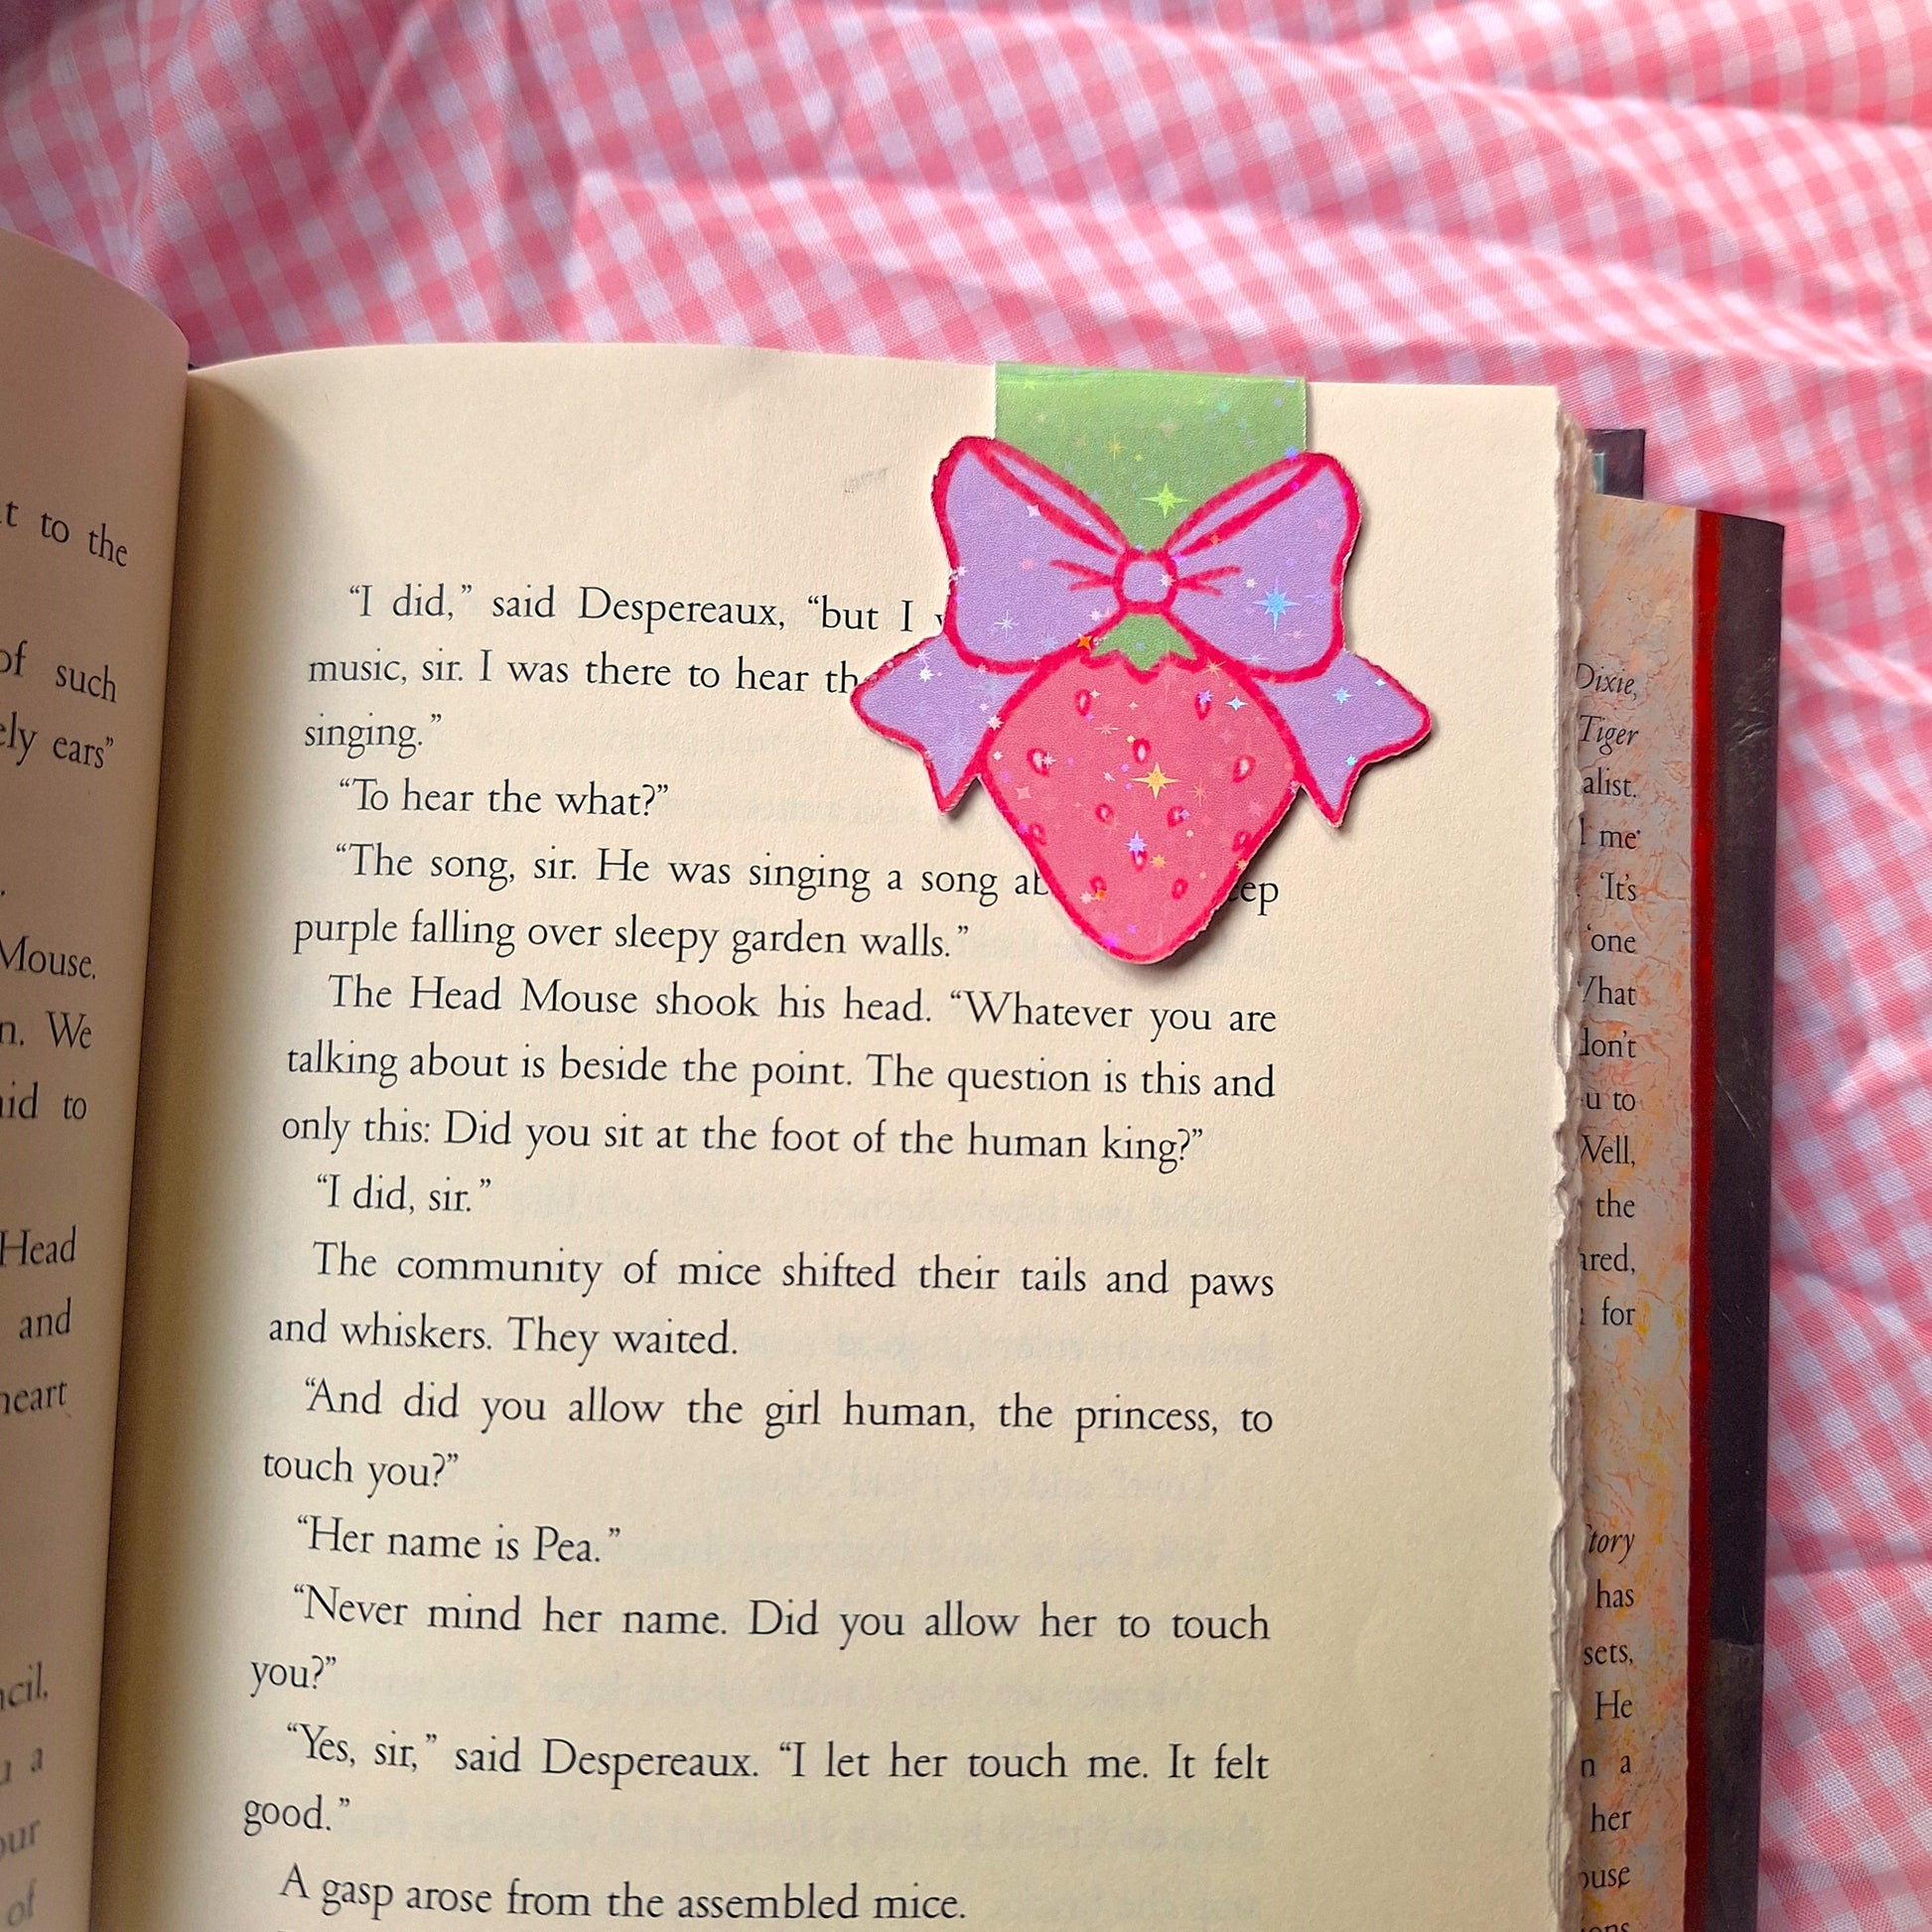 t to the
of such
ely ears"
Mouse.
n. We
aid to
Head
and
heart
ncil,
u a
our
of
“I did,” said Despereaux, “but I
music, sir. I was there to hear th
singing.”
“To hear the what?”
“The song, sir. He was singing a song ab eep
purple falling over sleepy garden walls.”
The Head Mouse shook his head. “Whatever you are
talking about is beside the point. The question is this and
only this: Did you sit at the foot of the human king?”
“I did, sir.”
The community of mice shifted their tails and paws
and whiskers. They waited.
“And did you allow the girl human, the princess, to
touch you?”
“Her name is Pea.”
“Never mind her name. Did you allow her to touch
you?”
“Yes, sir,” said Despereaux. “I let her touch me. It felt
good.”
A gasp arose from the assembled mice.
Dixie,
Tiger
alist.
me
‘It’s
‘one
What
don’t
u to
Well,
the
ared,
for
Story
has
sets,
He
n a
her
ouse